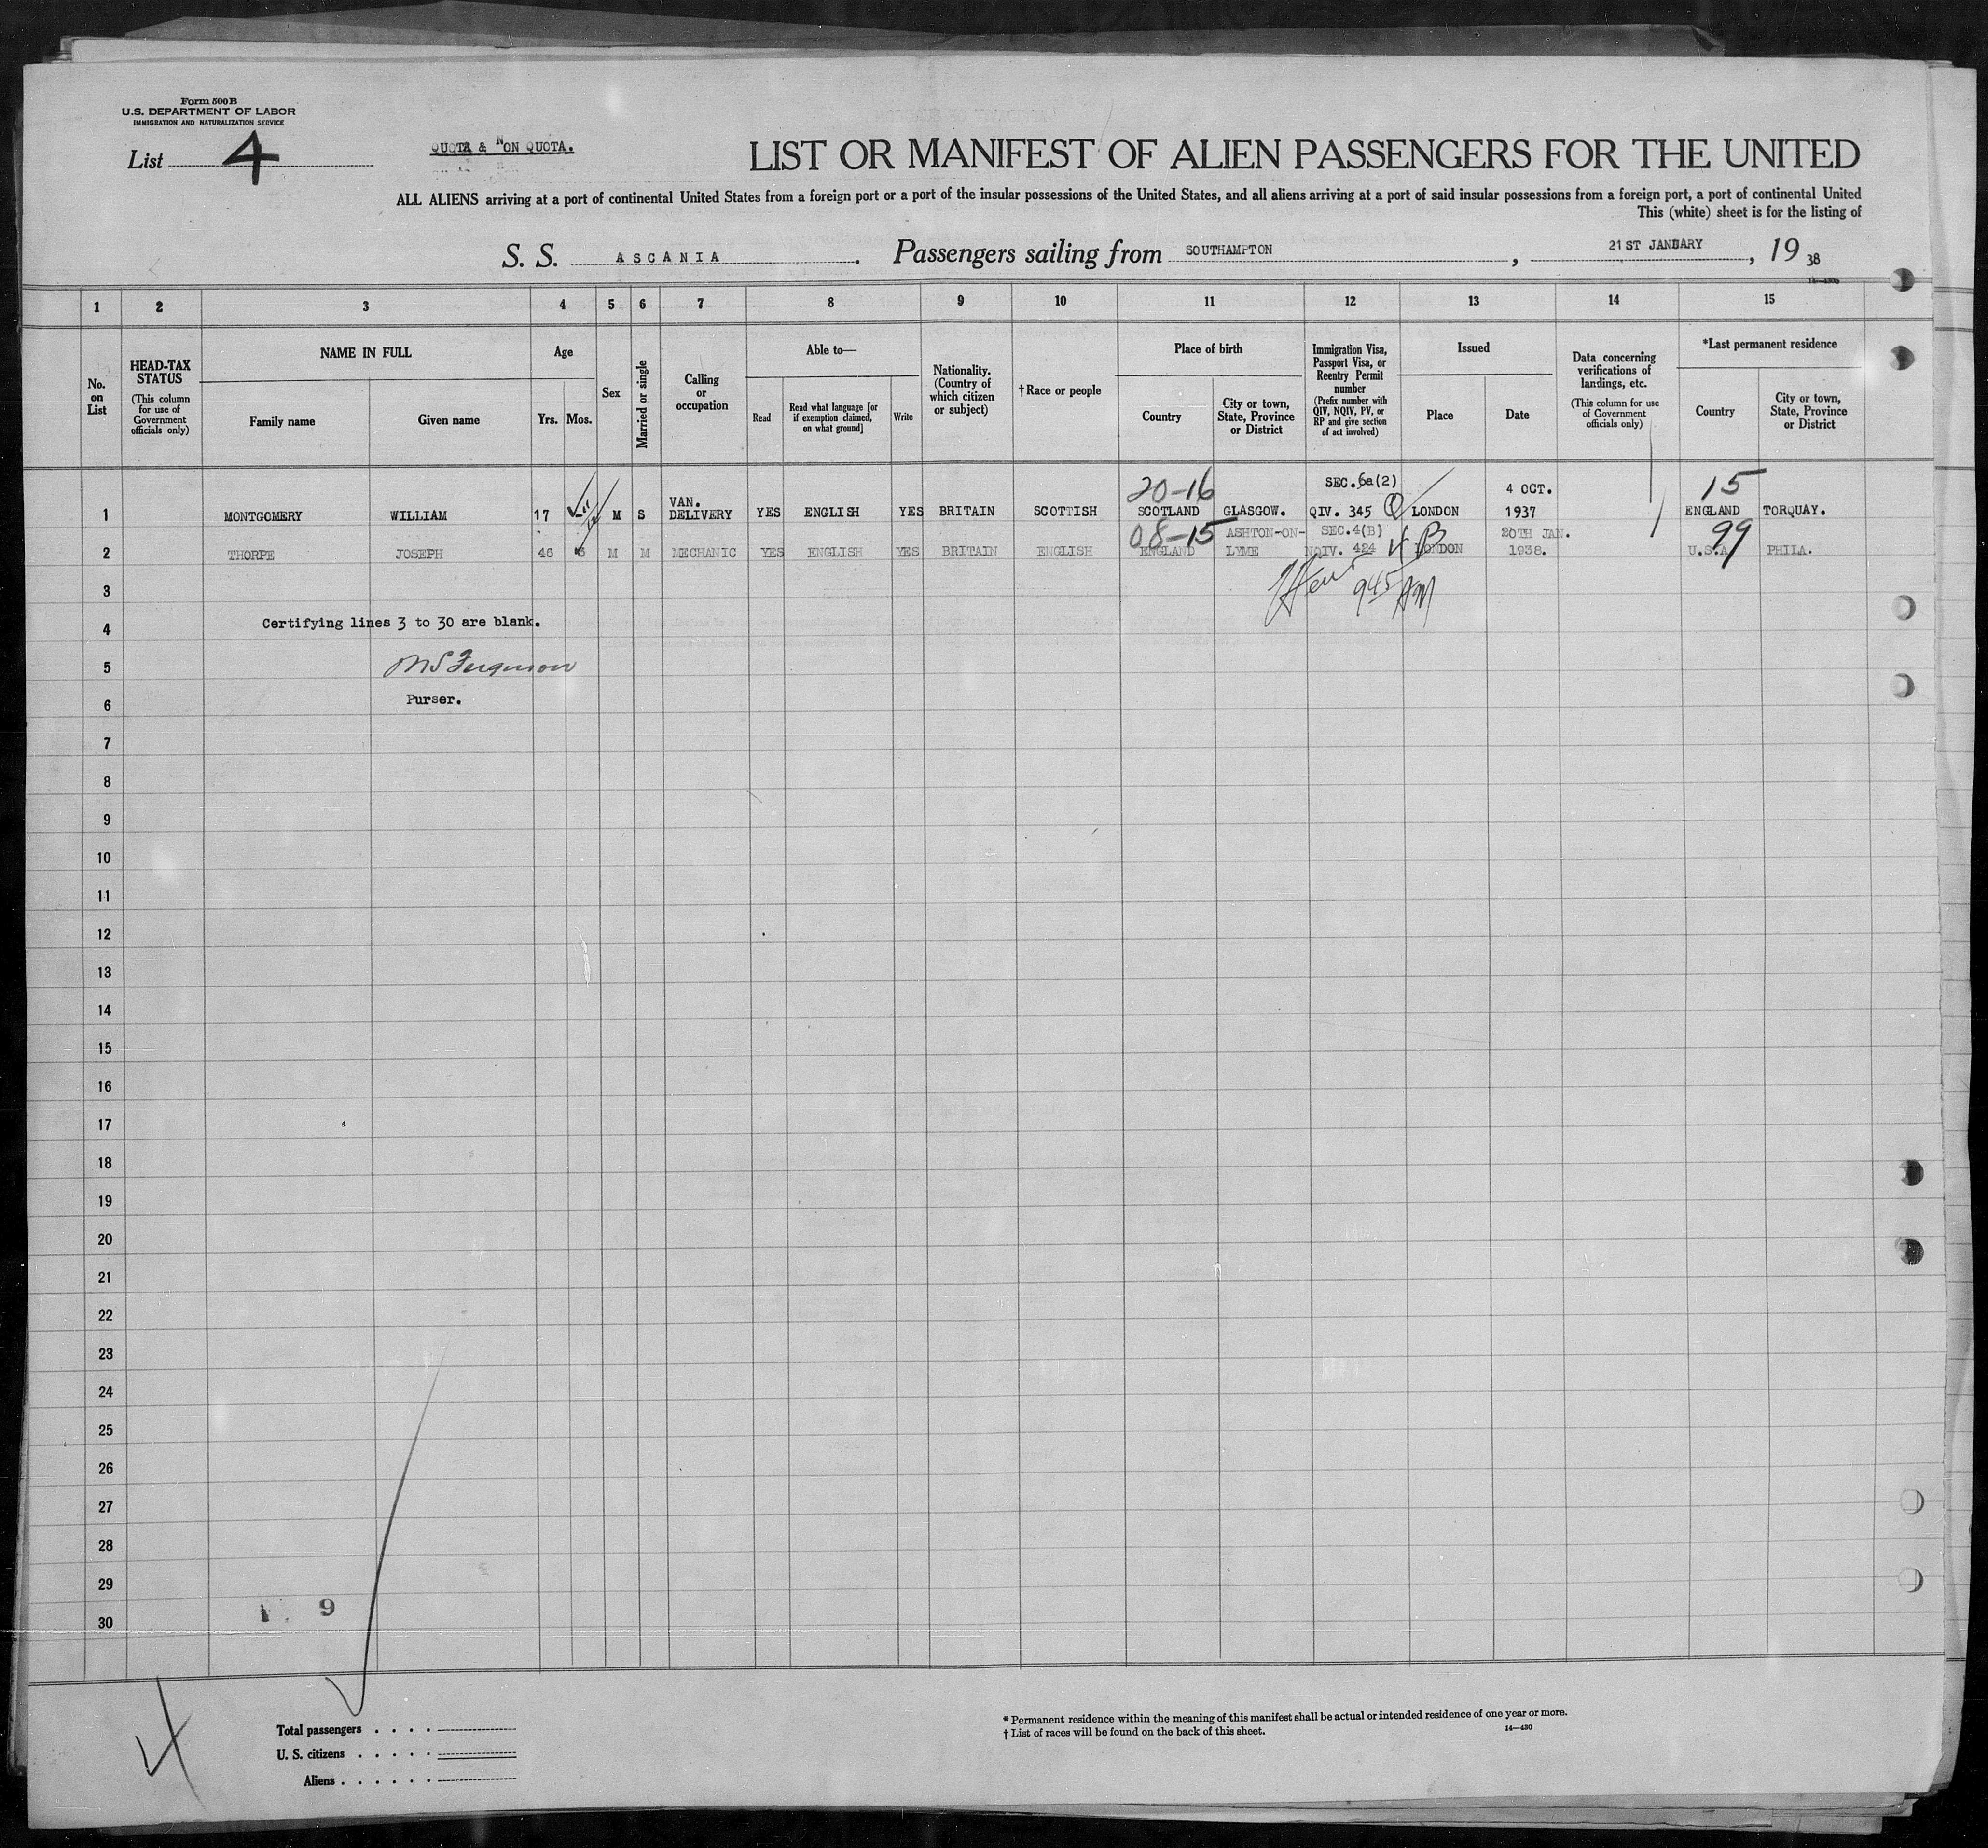 Form 500B
U.S. DEPARTMENT OF LABOR
IMMIGRATION AND NATURALIZATION SERVICE
List 4
QUOTA & NON QUOTA.
LIST OR MANIFEST OF ALIEN PASSENGERS FOR THE UNITED
ALL ALIENS arriving at a port of continental United States from a foreign port or a port of the insular possessions of the United States, and all aliens arriving at a port of said insular possessions from a foreign port, a port of continental United
This (white) sheet is for the listing of
S. S. ASCANIA. Passengers sailing from SOUTHAMPTON, 21ST JANUARY, 19 38
1 2 3 4 5 6 7 8 9 10 11 12 13 14 15
No. on List
HEAD-TAX STATUS
(This column for use of Government officials only)
NAME IN FULL
Family name
Given name
Age
Yrs. Mos.
Sex
Married or single
Calling or occupation
Able to—
Read
Read what language [or if exemption claimed, on what ground]
Write
Nationality. (Country of which citizen or subject)
†Race or people
Place of birth
Country
City or town, State, Province or District
Immigration Visa, Passport Visa, or Reentry Permit number
(Prefix number with QIV, NQIV, PV, or RP and give section of act involved)
Issued
Place
Date
Data concerning verifications of landings, etc.
(This column for use of Government officials only)
*Last permanent residence
Country
City or town, State, Province or District
20-16 SEC.6a(2) 4 OCT. 15
1 MONTGOMERY WILLIAM 17 M S VAN. DELIVERY YES ENGLISH YES BRITAIN SCOTTISH SCOTLAND GLASGOW. QIV. 345 Q LONDON 1937 ENGLAND TORQUAY.
08-15 ASHTON-ON- SEC.4(B) 20TH JAN. 99
2 THORPE JOSEPH 46 M M MECHANIC YES ENGLISH YES BRITAIN ENGLISH ENGLAND LYME NQIV. 424 4 B LONDON 1938. U.S.A. PHILA.
945 AM
3
Certifying lines 3 to 30 are blank.
4
5 MS Ferguson
6 Purser.
7
8
9
10
11
12
13
14
15
16
17
18
19
20
21
22
23
24
25
26
27
28
29
9
30
4
Total passengers . . . .
U. S. citizens . . . . .
Aliens . . . . . .
* Permanent residence within the meaning of this manifest shall be actual or intended residence of one year or more.
† List of races will be found on the back of this sheet.
14—430